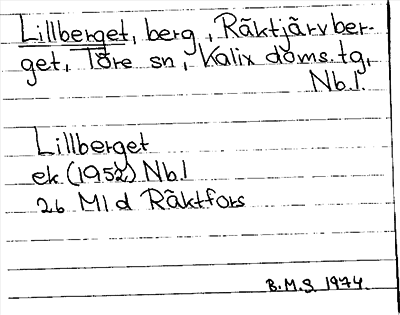 Lillberget, berg, Räktjärvber-
get, Töre sn, Kalix doms.tg,
Nb.l.
Lillberget
ek (1952) Nb.l
26 Ml d Räktfors
B.M.S. 1974.